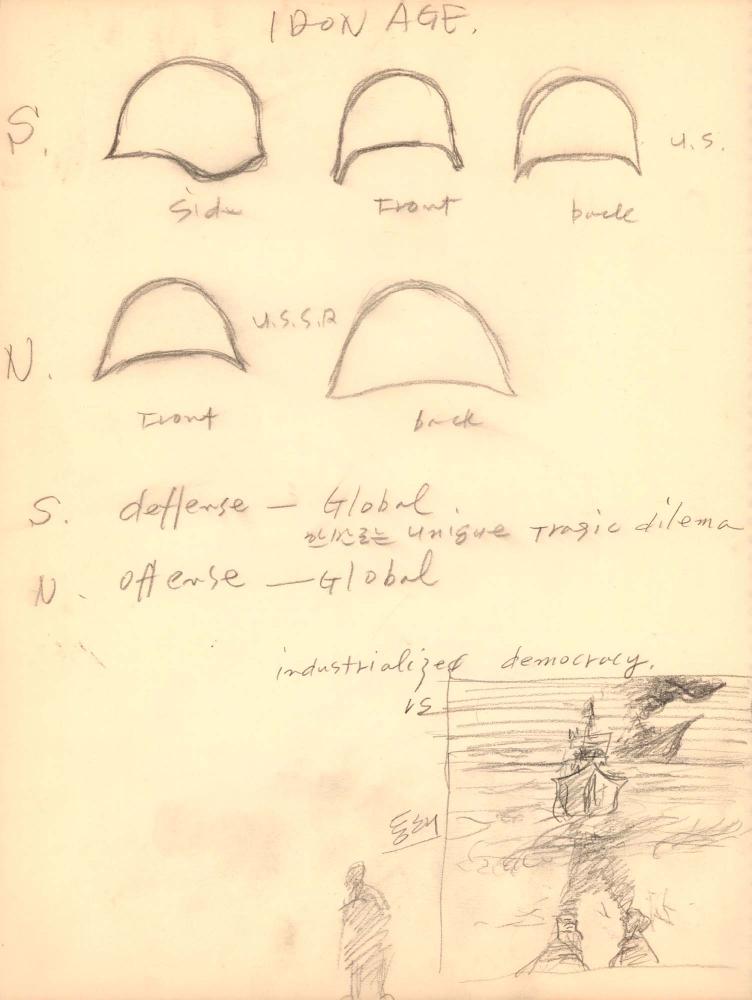 IRON AGE.
S.
U.S.
Side
Front
back
N.
U.S.S.R
Front
back
S. deffense — Global.
한반도는 unique Tragic dilema
N. offense — Global
industrialized democracy.
VS
동해